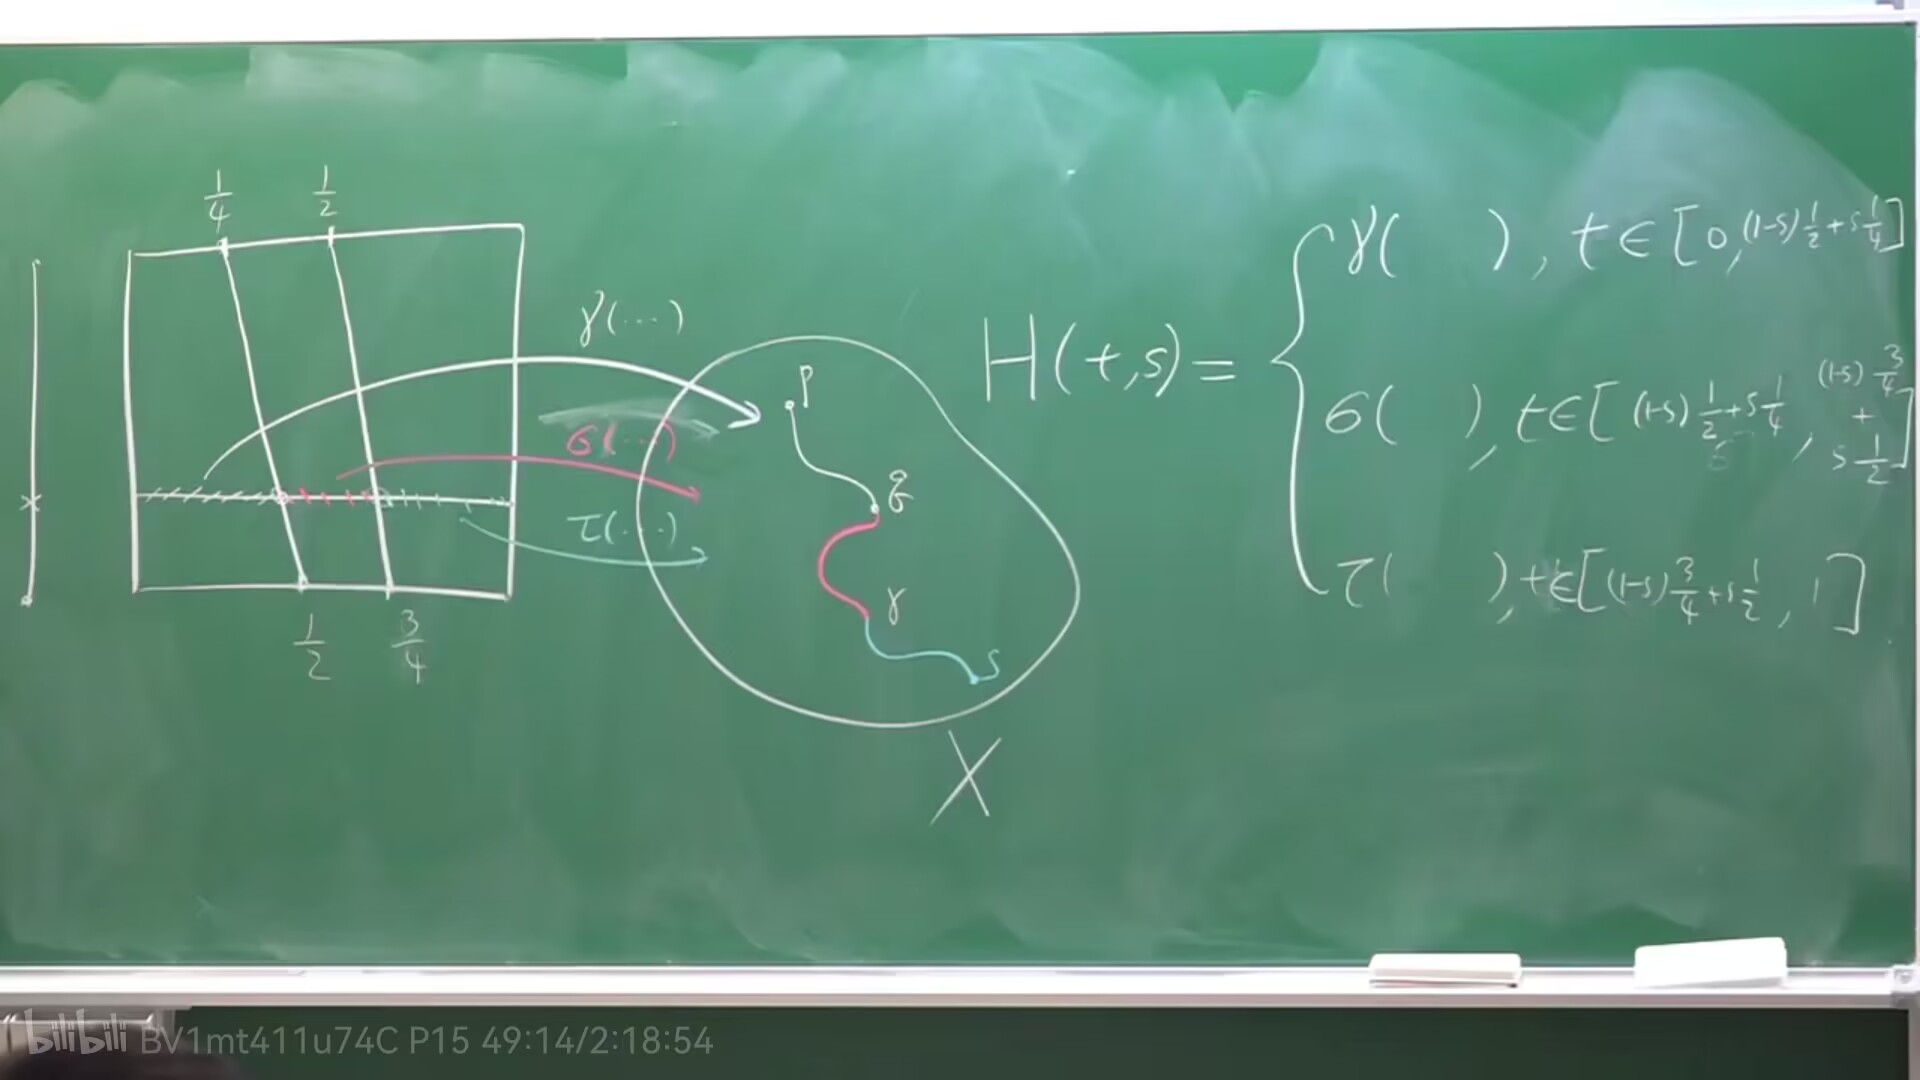 1/4 1/2
γ(···)
σ(···)
τ(···)
1/2 3/4
p
q
r
s
X
H(t,s)=
γ( ), t∈[0,(1-s)1/2+s1/4]
σ( ), t∈[(1-s)1/2+s1/4, (1-s)3/4+s1/2]
τ( ), t∈[(1-s)3/4+s1/2, 1]
bilibili BV1mt411u74C P15 49:14/2:18:54